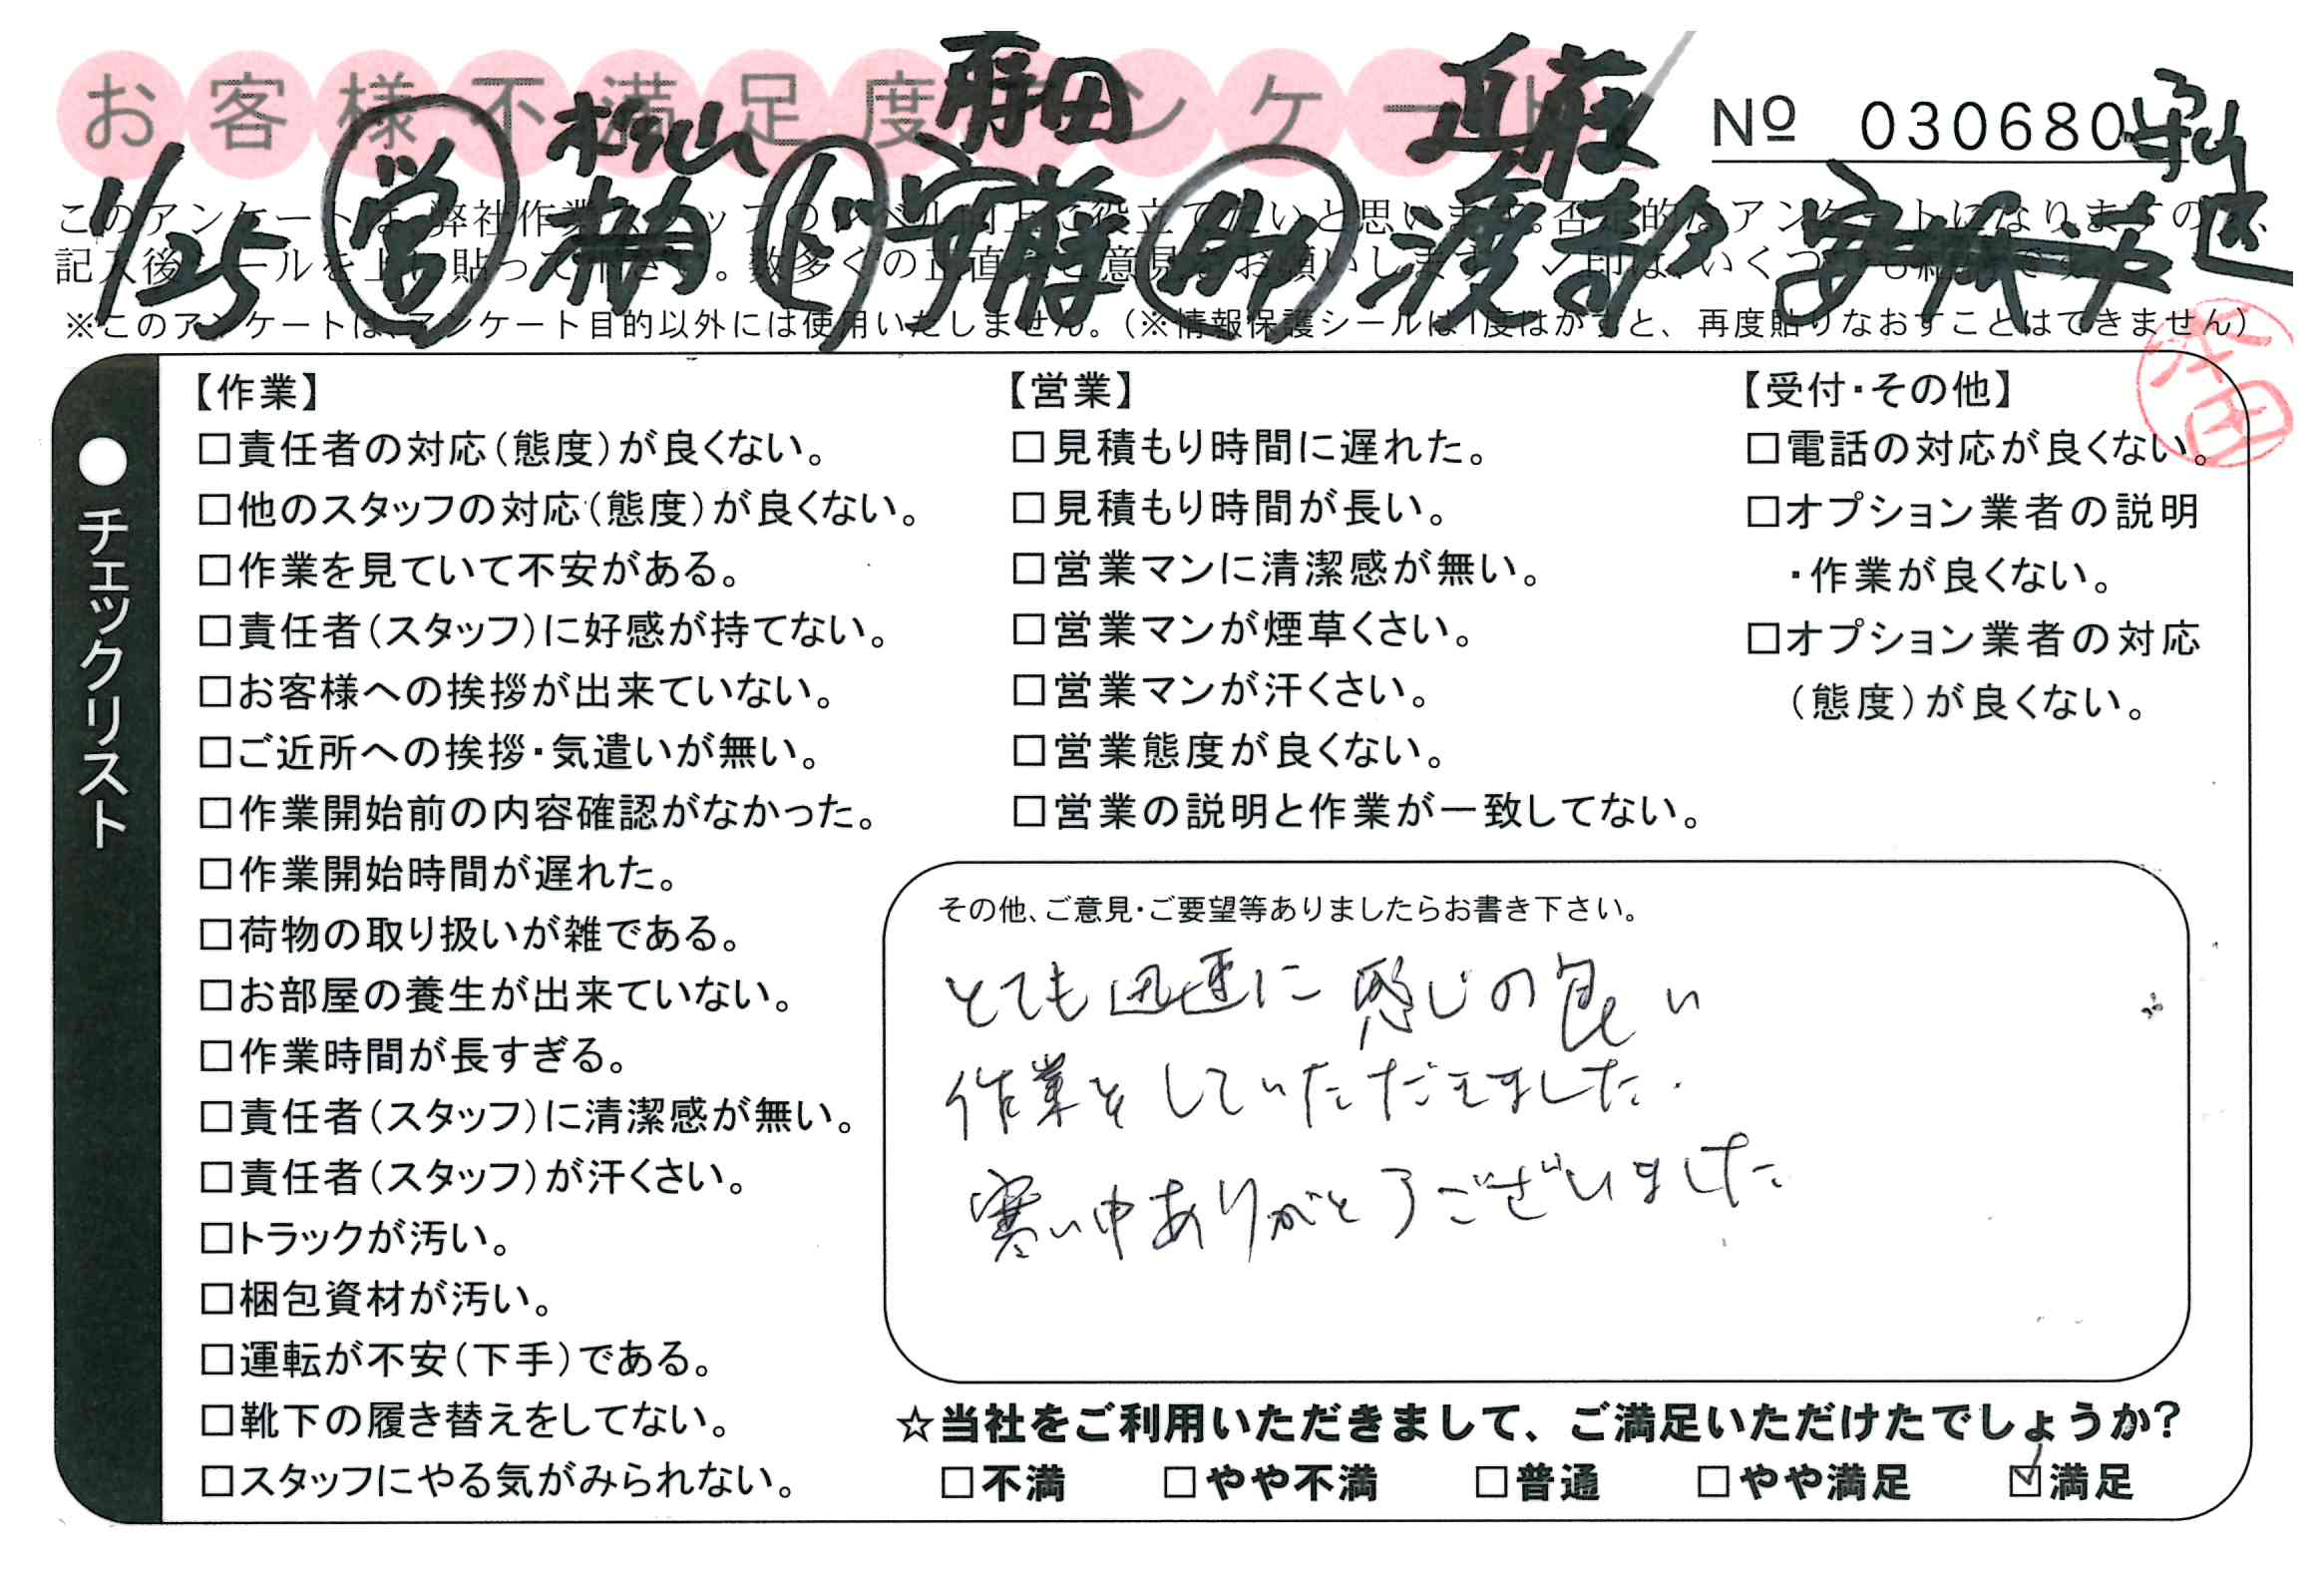 お客様不満足度アンケート
№ 030680
1/25 営 松山 ド 安藤 助 渡部 近藤
※このアンケートは、アンケート目的以外には使用いたしません。（※情報保護シールは1度はがすと、再度貼りなおすことはできません）
●チェックリスト
【作業】
□責任者の対応（態度）が良くない。
□他のスタッフの対応（態度）が良くない。
□作業を見ていて不安がある。
□責任者（スタッフ）に好感が持てない。
□お客様への挨拶が出来ていない。
□ご近所への挨拶・気遣いが無い。
□作業開始前の内容確認がなかった。
□作業開始時間が遅れた。
□荷物の取り扱いが雑である。
□お部屋の養生が出来ていない。
□作業時間が長すぎる。
□責任者（スタッフ）に清潔感が無い。
□責任者（スタッフ）が汗くさい。
□トラックが汚い。
□梱包資材が汚い。
□運転が不安（下手）である。
□靴下の履き替えをしてない。
□スタッフにやる気がみられない。
【営業】
□見積もり時間に遅れた。
□見積もり時間が長い。
□営業マンに清潔感が無い。
□営業マンが煙草くさい。
□営業マンが汗くさい。
□営業態度が良くない。
□営業の説明と作業が一致してない。
【受付・その他】
□電話の対応が良くない。
□オプション業者の説明
・作業が良くない。
□オプション業者の対応
（態度）が良くない。
その他、ご意見・ご要望等ありましたらお書き下さい。
とても迅速に感じの良い
作業をしていただきました.
寒い中ありがとうございました
☆当社をご利用いただきまして、ご満足いただけたでしょうか?
□不満 □やや不満 □普通 □やや満足 ☑満足